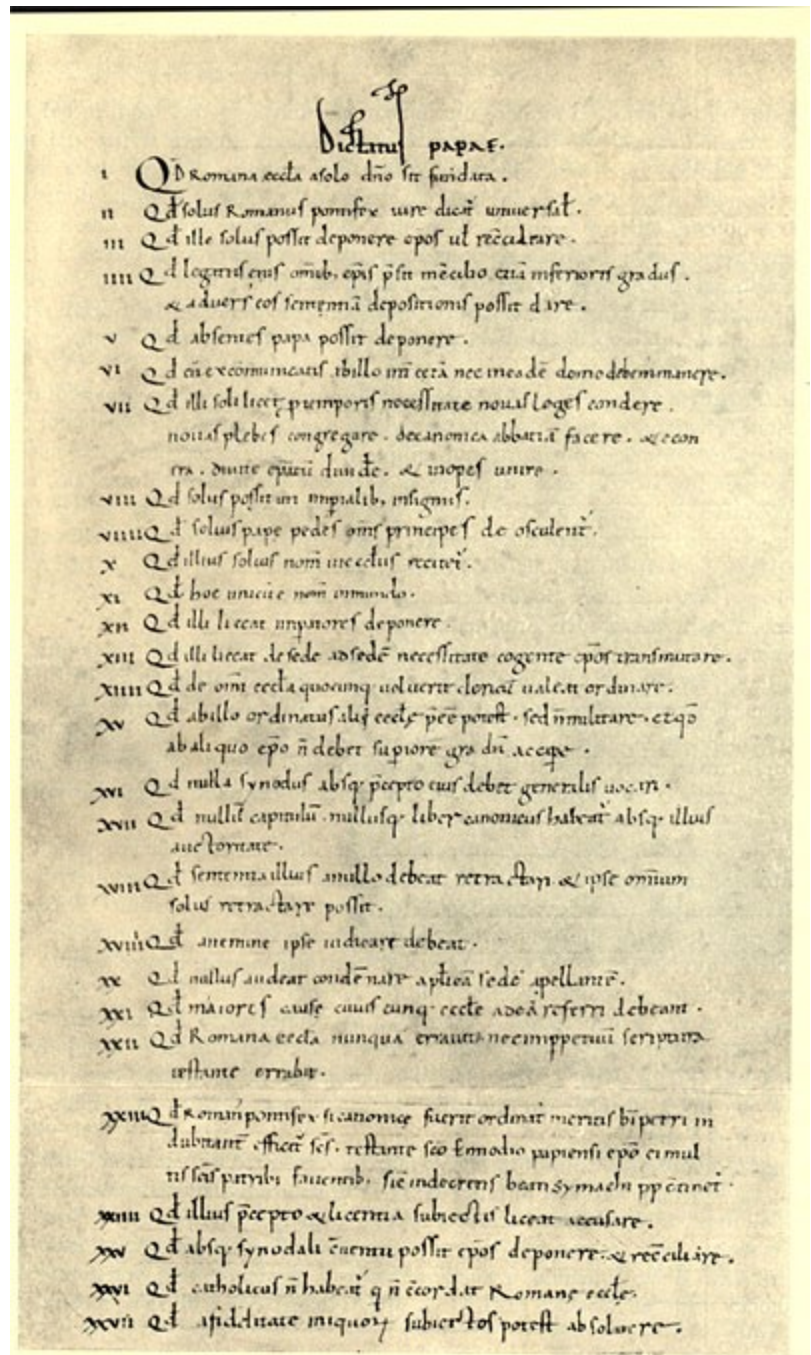 Dictatus papae.
i QD Romana eccl̄a a solo dn̄o sit fundata.
ii Qđ solus Romanus pontifex iure dicat̄ universał.
iii Qđ ille solus possit deponere ep̄os uł rec̄ciliare.
iiii Qđ legatus eius om̄ib; ep̄is p̄sit in c̄cilio etiā inferioris gradus.
& adversus eos sententiā depositionis possit dare.
v Qđ absentes papa possit deponere.
vi Qđ cū excōmunicatis ab illo int̄ cet̄a nec in eadē domo debem; manere.
vii Qđ illi soli licet p̄ temporis necessitate novas leges condere.
novas plebes congregare. de canonica abbatiā facere. & econ
tra. divite ep̄atū dividēe. & inopes unire.
viii Qđ solus possit uti imp̄ialib; insigniis.
viiii Qđ solius pape pedes om̄s principes deosculent̄.
x Qđ illius solius nom̄ in eccl̄iis recitet̄.
xi Qđ hoc unicū ē nom̄ in mundo.
xii Qđ illi liceat imp̄atores deponere.
xiii Qđ illi liceat de sede ad sedē necessitate cogente ep̄os transmutare.
xiiii Qđ de om̄i eccl̄a quocunq; voluerit clericū valeat ordinare.
xv Qđ ab illo ordinatus alii eccl̄ę p̄ee potest. sed n̄ militare. et qđ
ab aliquo ep̄o n̄ debet superiorē gradū accipe.
xvi Qđ nulla synodus absq; p̄cepto eius debet generalis vocari.
xvii Qđ nullū capitulū. nullusq; liber canonicus habeat̄ absq; illius
auctoritate.
xviii Qđ sententia illius a nullo debeat retractari & ipse om̄ium
solus retractare possit.
xviiii Qđ a nemine ipse iudicare debeat.
xx Qđ nullus audeat condēnare ap̄licā sedē apellantē.
xxi Qđ maiores cause cuiuscunq; eccl̄e ad eā referri debeant.
xxii Qđ Romana eccl̄a nunquā erravit nec inp̄petuū scriptura
testante errabit.
xxiii Qđ Roman̄ pontifex si canonicę fuerit ordinat̄ meritis b̄i petri in
dubitant̄ efficit̄ sc̄s. testante sc̄o Ennodio papiensi ep̄o ei mul
tis sc̄is patribus faventib; sic̄ in decretis beati symachi pp̄ c̄tinet̄.
xxiiii Qđ illius p̄cepto & licentia subiectis liceat accusare.
xxv Qđ absq; synodali c̄ventu possit ep̄os deponere. & rec̄ciliare.
xxvi Qđ catholicus n̄ habeat̄ q̄ n̄ c̄cordat Romanę eccl̄ę.
xxvii Qđ a fidelitate iniquorꝝ subiectos potest absolvere.